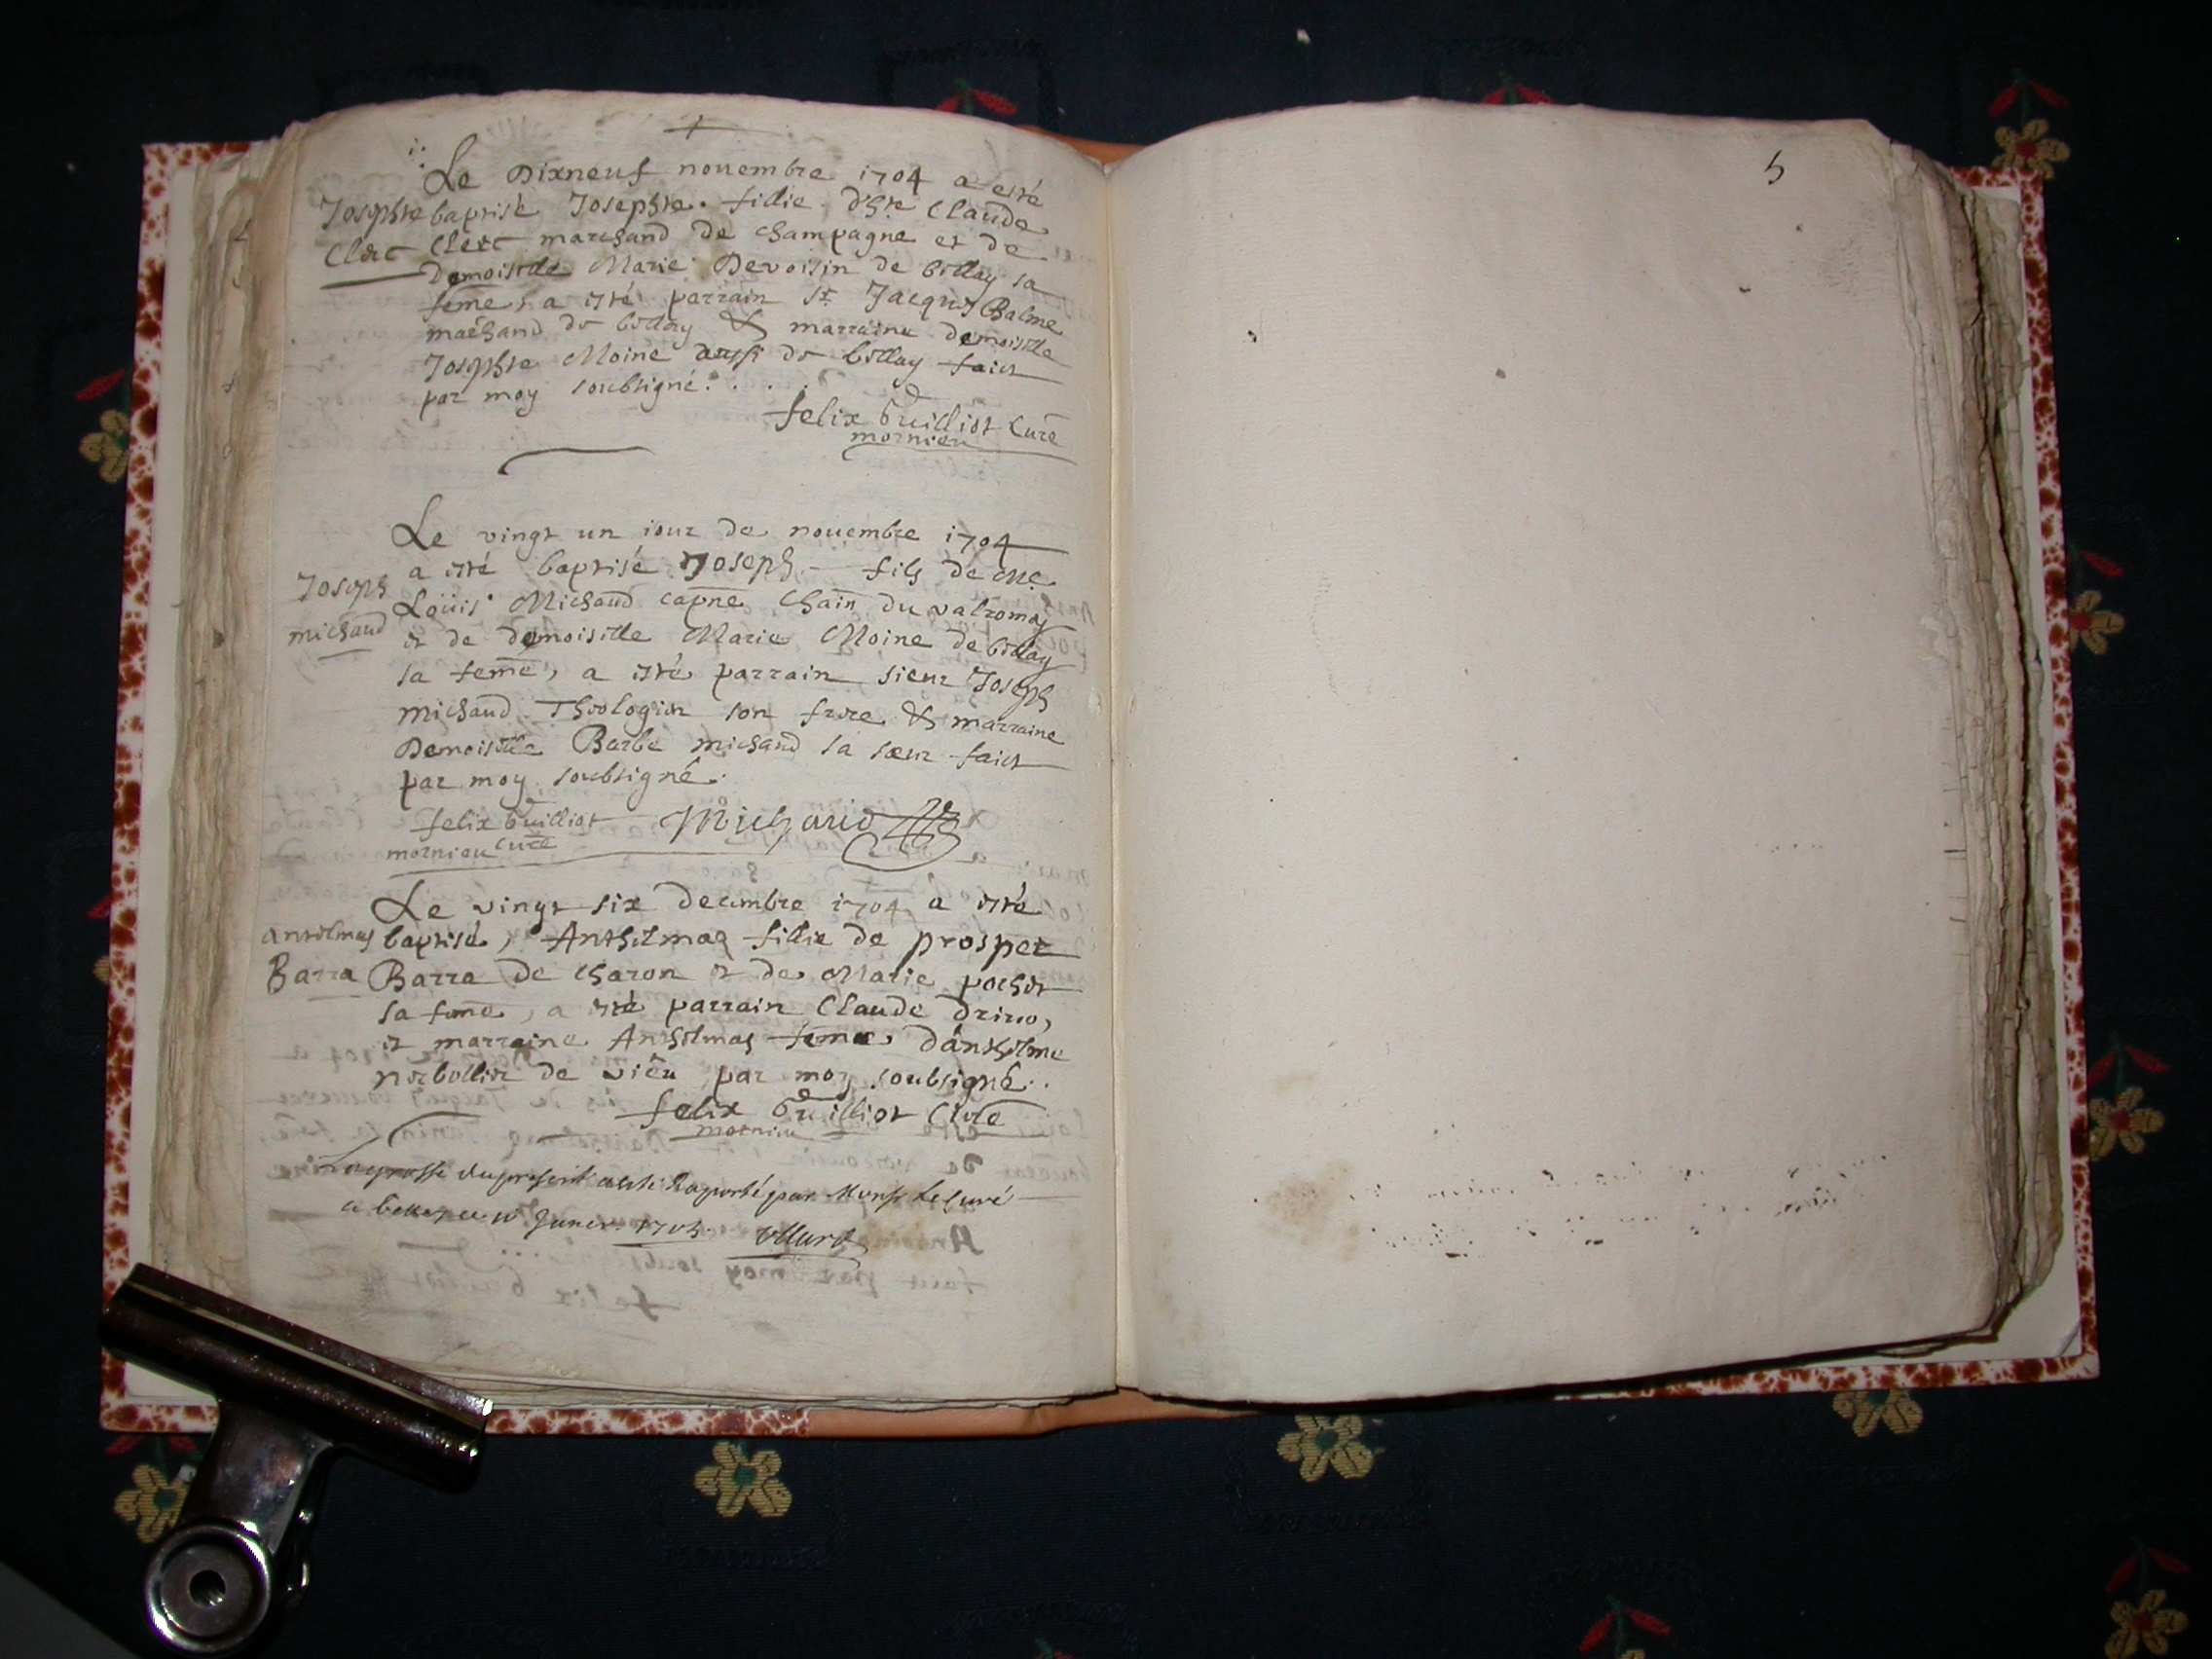 Le Dixneuf nouembre 1704 a esté
Josephte baptisé Josephte fillie d'hte Claude
Clerc Clerc marchand de champagne et de
Demoiselle Marie Devoisin de bellay sa
feme, a esté parrain sr Jacques Balme
marchand de bellay & marraine demoiselle
Josephte Moine aussi de bellay faict
par moy soubsigné
felix Guilliot Curé
mornieu
Le vingt un iour de nouembre 1704
a esté baptisé Joseph fils de Me
Joseph Loüis Michaud capne chain du valromay
michaud et de demoiselle Marie Moine de bellay
sa feme, a esté parrain sieur Joseph
michaud Theologien son frere & marraine
Demoiselle Barbe michaud sa soeur faict
par moy soubsigné
felix Guilliot Michaud
mornieu curé
Le vingt six decembre 1704 a esté
baptisé, Anthelmaz fillie de prosper
Barra Barra de charon et de Marie pochet
sa feme, a esté parrain Claude
et marraine Anthelmaz feme d'anthelme
de vieu par moy soubsigné
felix Guilliot Curé
mornieu
du present acte Raporté par Monsr Le Curé
a belley ce 10 Janer 1705
5